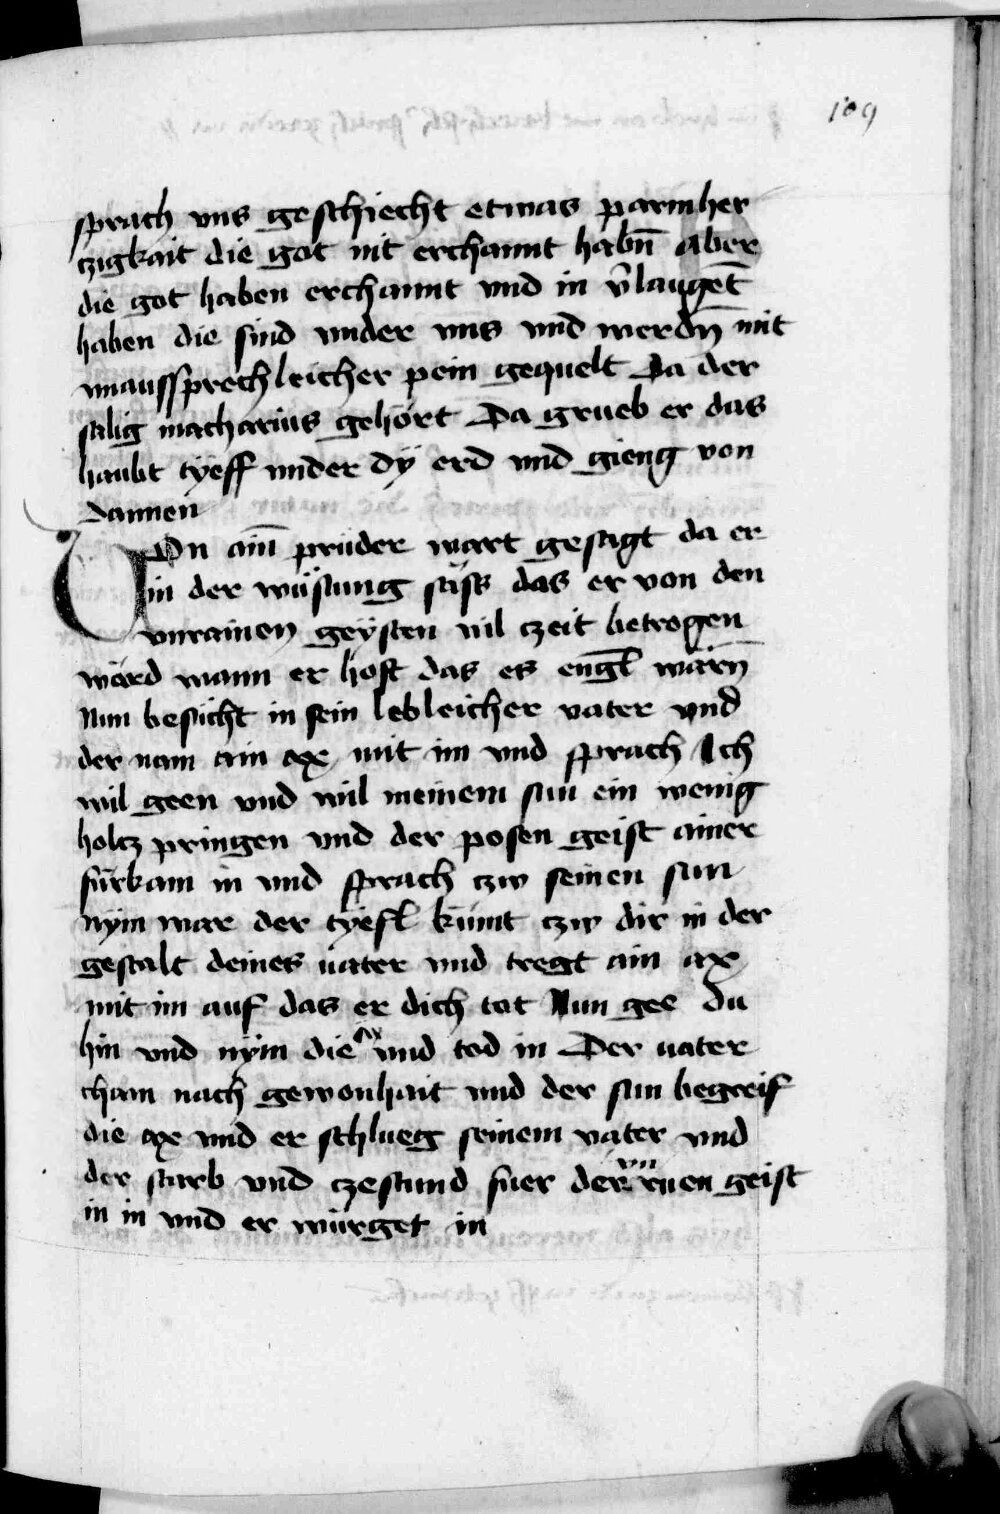 109
sprach vns geschiecht etwas parmher
czigkait die got nit erchannt habn̄ aber
die got haben erchannt vnd in v̄laugēt
haben die sind vnder vns vnd werdn̄ mit
vnaussprechleicher pein gequelt Da der
sälig macharius gehört Da grueb er das
haubt tyeff vnder dÿ erd vnd gieng von
dannen
Von aim̄ prüder wart gesagt da er
in der wüstung säss das er von den
vnrainen geÿsten vil czeit betrogen
wärd wann er hoft das es engl̄ wärn̄
Nun besücht in sein lebleicher vater vnd
der nam ain ax mit im vnd sprach Ich
wil geen vnd wil meinem sun ein wenig
holcz pringen vnd der posen geist ainer
fürkam in vnd sprach czw seinen sun
nÿm war der tyefl kümt czw dir in der
gestalt deines vater vnd tregt ain ax
mit im auf das er dich töt Nun gee du
hin vnd nÿm die ax vnd tod in Der vater
cham nach gewonhait vnd der sun begreif
die ax vnd er schlueg seinem vater vnd
der starb vnd czestund fuer der vn rnen geist
in in vnd er würget in